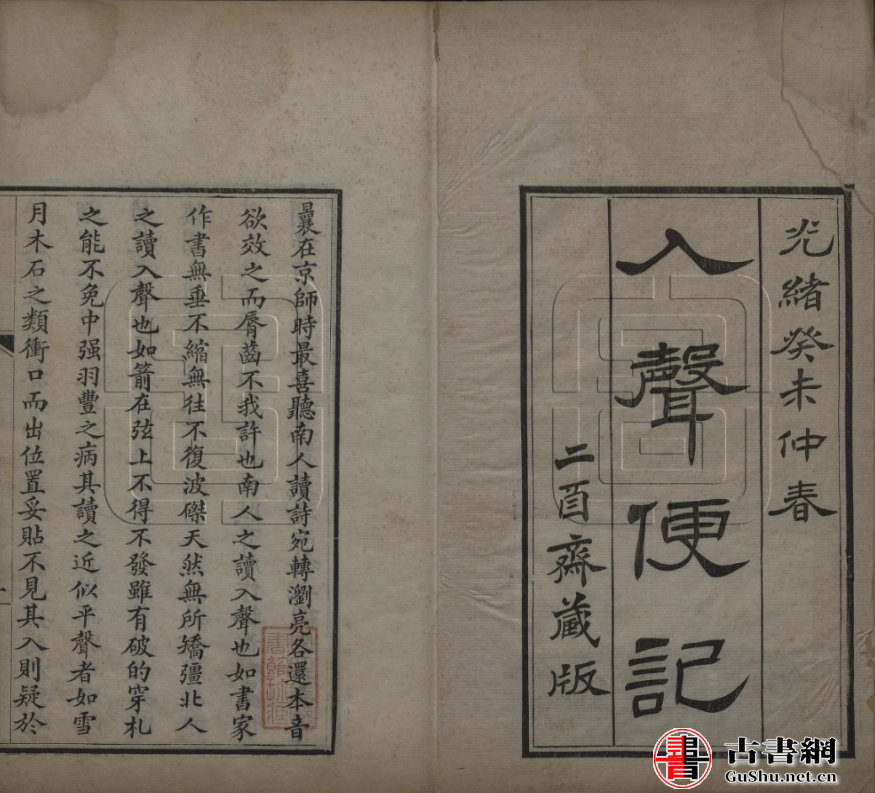 光緒癸未仲春
入聲便記
二酉齋藏版
曩在京師時最喜聽南人讀詩宛轉瀏亮各還本音
欲效之而脣齒不我許也南人之讀入聲也如書家
作書無垂不縮無往不復波磔天然無所矯彊北人
之讀入聲也如箭在弦上不得不發雖有破的穿札
之能不免中强羽豐之病其讀之近似平聲者如雪
月木石之類衝口而出位置妥貼不見其入則疑於
書
古書網
GuShu.net.cn